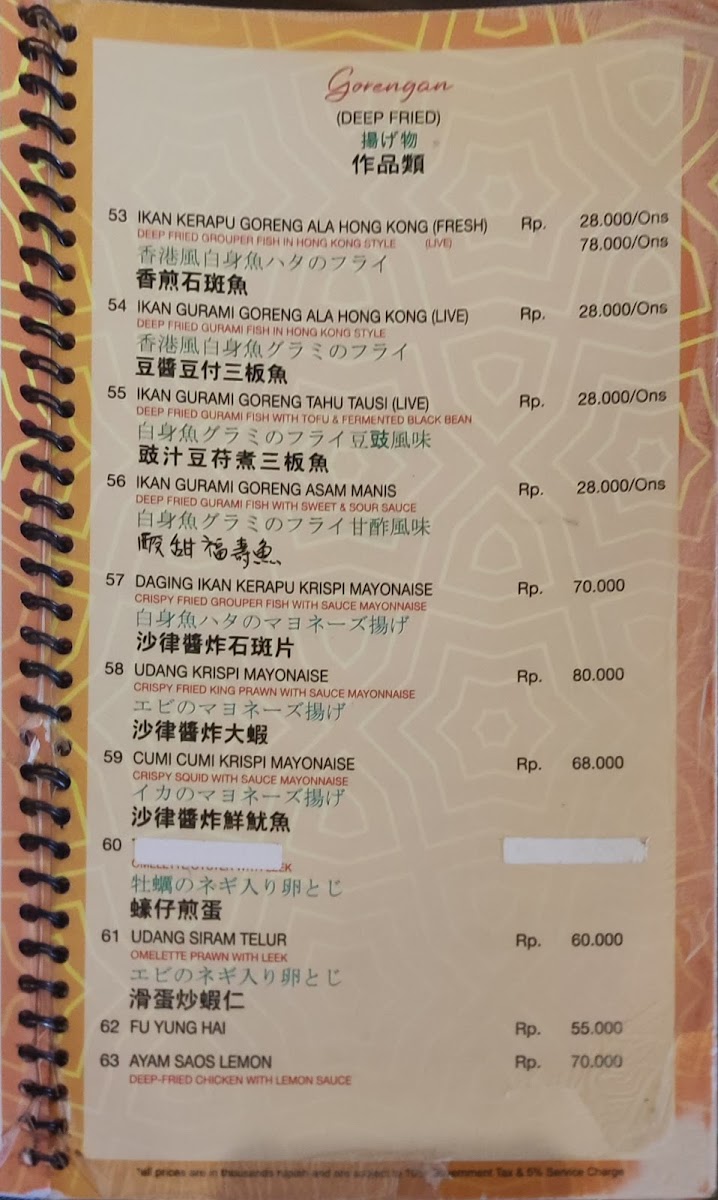 Gorengan
(DEEP FRIED)
揚げ物
作品類
53 IKAN KERAPU GORENG ALA HONG KONG (FRESH) Rp. 28.000/Ons
DEEP FRIED GROUPER FISH IN HONG KONG STYLE (LIVE) 78.000/Ons
香港風白身魚ハタのフライ
香煎石斑魚
54 IKAN GURAMI GORENG ALA HONG KONG (LIVE) Rp. 28.000/Ons
DEEP FRIED GURAMI FISH IN HONG KONG STYLE
香港風白身魚グラミのフライ
豆醬豆付三板魚
55 IKAN GURAMI GORENG TAHU TAUSI (LIVE) Rp. 28.000/Ons
DEEP FRIED GURAMI FISH WITH TOFU & FERMENTED BLACK BEAN
白身魚グラミのフライ豆豉風味
豉汁豆苻煮三板魚
56 IKAN GURAMI GORENG ASAM MANIS Rp. 28.000/Ons
DEEP FRIED GURAMI FISH WITH SWEET & SOUR SAUCE
白身魚グラミのフライ甘酢風味
酸甜福壽魚
57 DAGING IKAN KERAPU KRISPI MAYONAISE Rp. 70.000
CRISPY FRIED GROUPER FISH WITH SAUCE MAYONNAISE
白身魚ハタのマヨネーズ揚げ
沙律醬炸石斑片
58 UDANG KRISPI MAYONAISE Rp. 80.000
CRISPY FRIED KING PRAWN WITH SAUCE MAYONNAISE
エビのマヨネーズ揚げ
沙律醬炸大蝦
59 CUMI CUMI KRISPI MAYONAISE Rp. 68.000
CRISPY SQUID WITH SAUCE MAYONNAISE
イカのマヨネーズ揚げ
沙律醬炸鮮魷魚
60
OMELETTE OYSTER WITH LEEK
牡蠣のネギ入り卵とじ
蠔仔煎蛋
61 UDANG SIRAM TELUR Rp. 60.000
OMELETTE PRAWN WITH LEEK
エビのネギ入り卵とじ
滑蛋炒蝦仁
62 FU YUNG HAI Rp. 55.000
63 AYAM SAOS LEMON Rp. 70.000
DEEP-FRIED CHICKEN WITH LEMON SAUCE
*all prices are in thousands rupiah and are subject to 10% Government Tax & 5% Service Charge